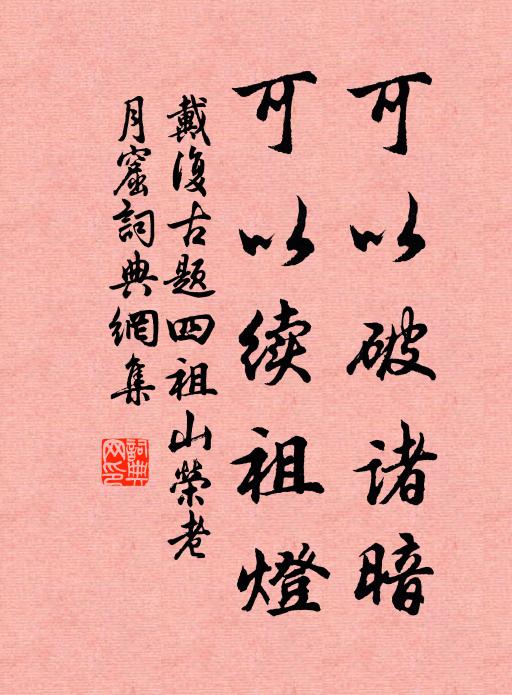 可以破诸暗
可以续祖燈
戴復古题四祖山榮老
月窟詞典網集
詞典网印